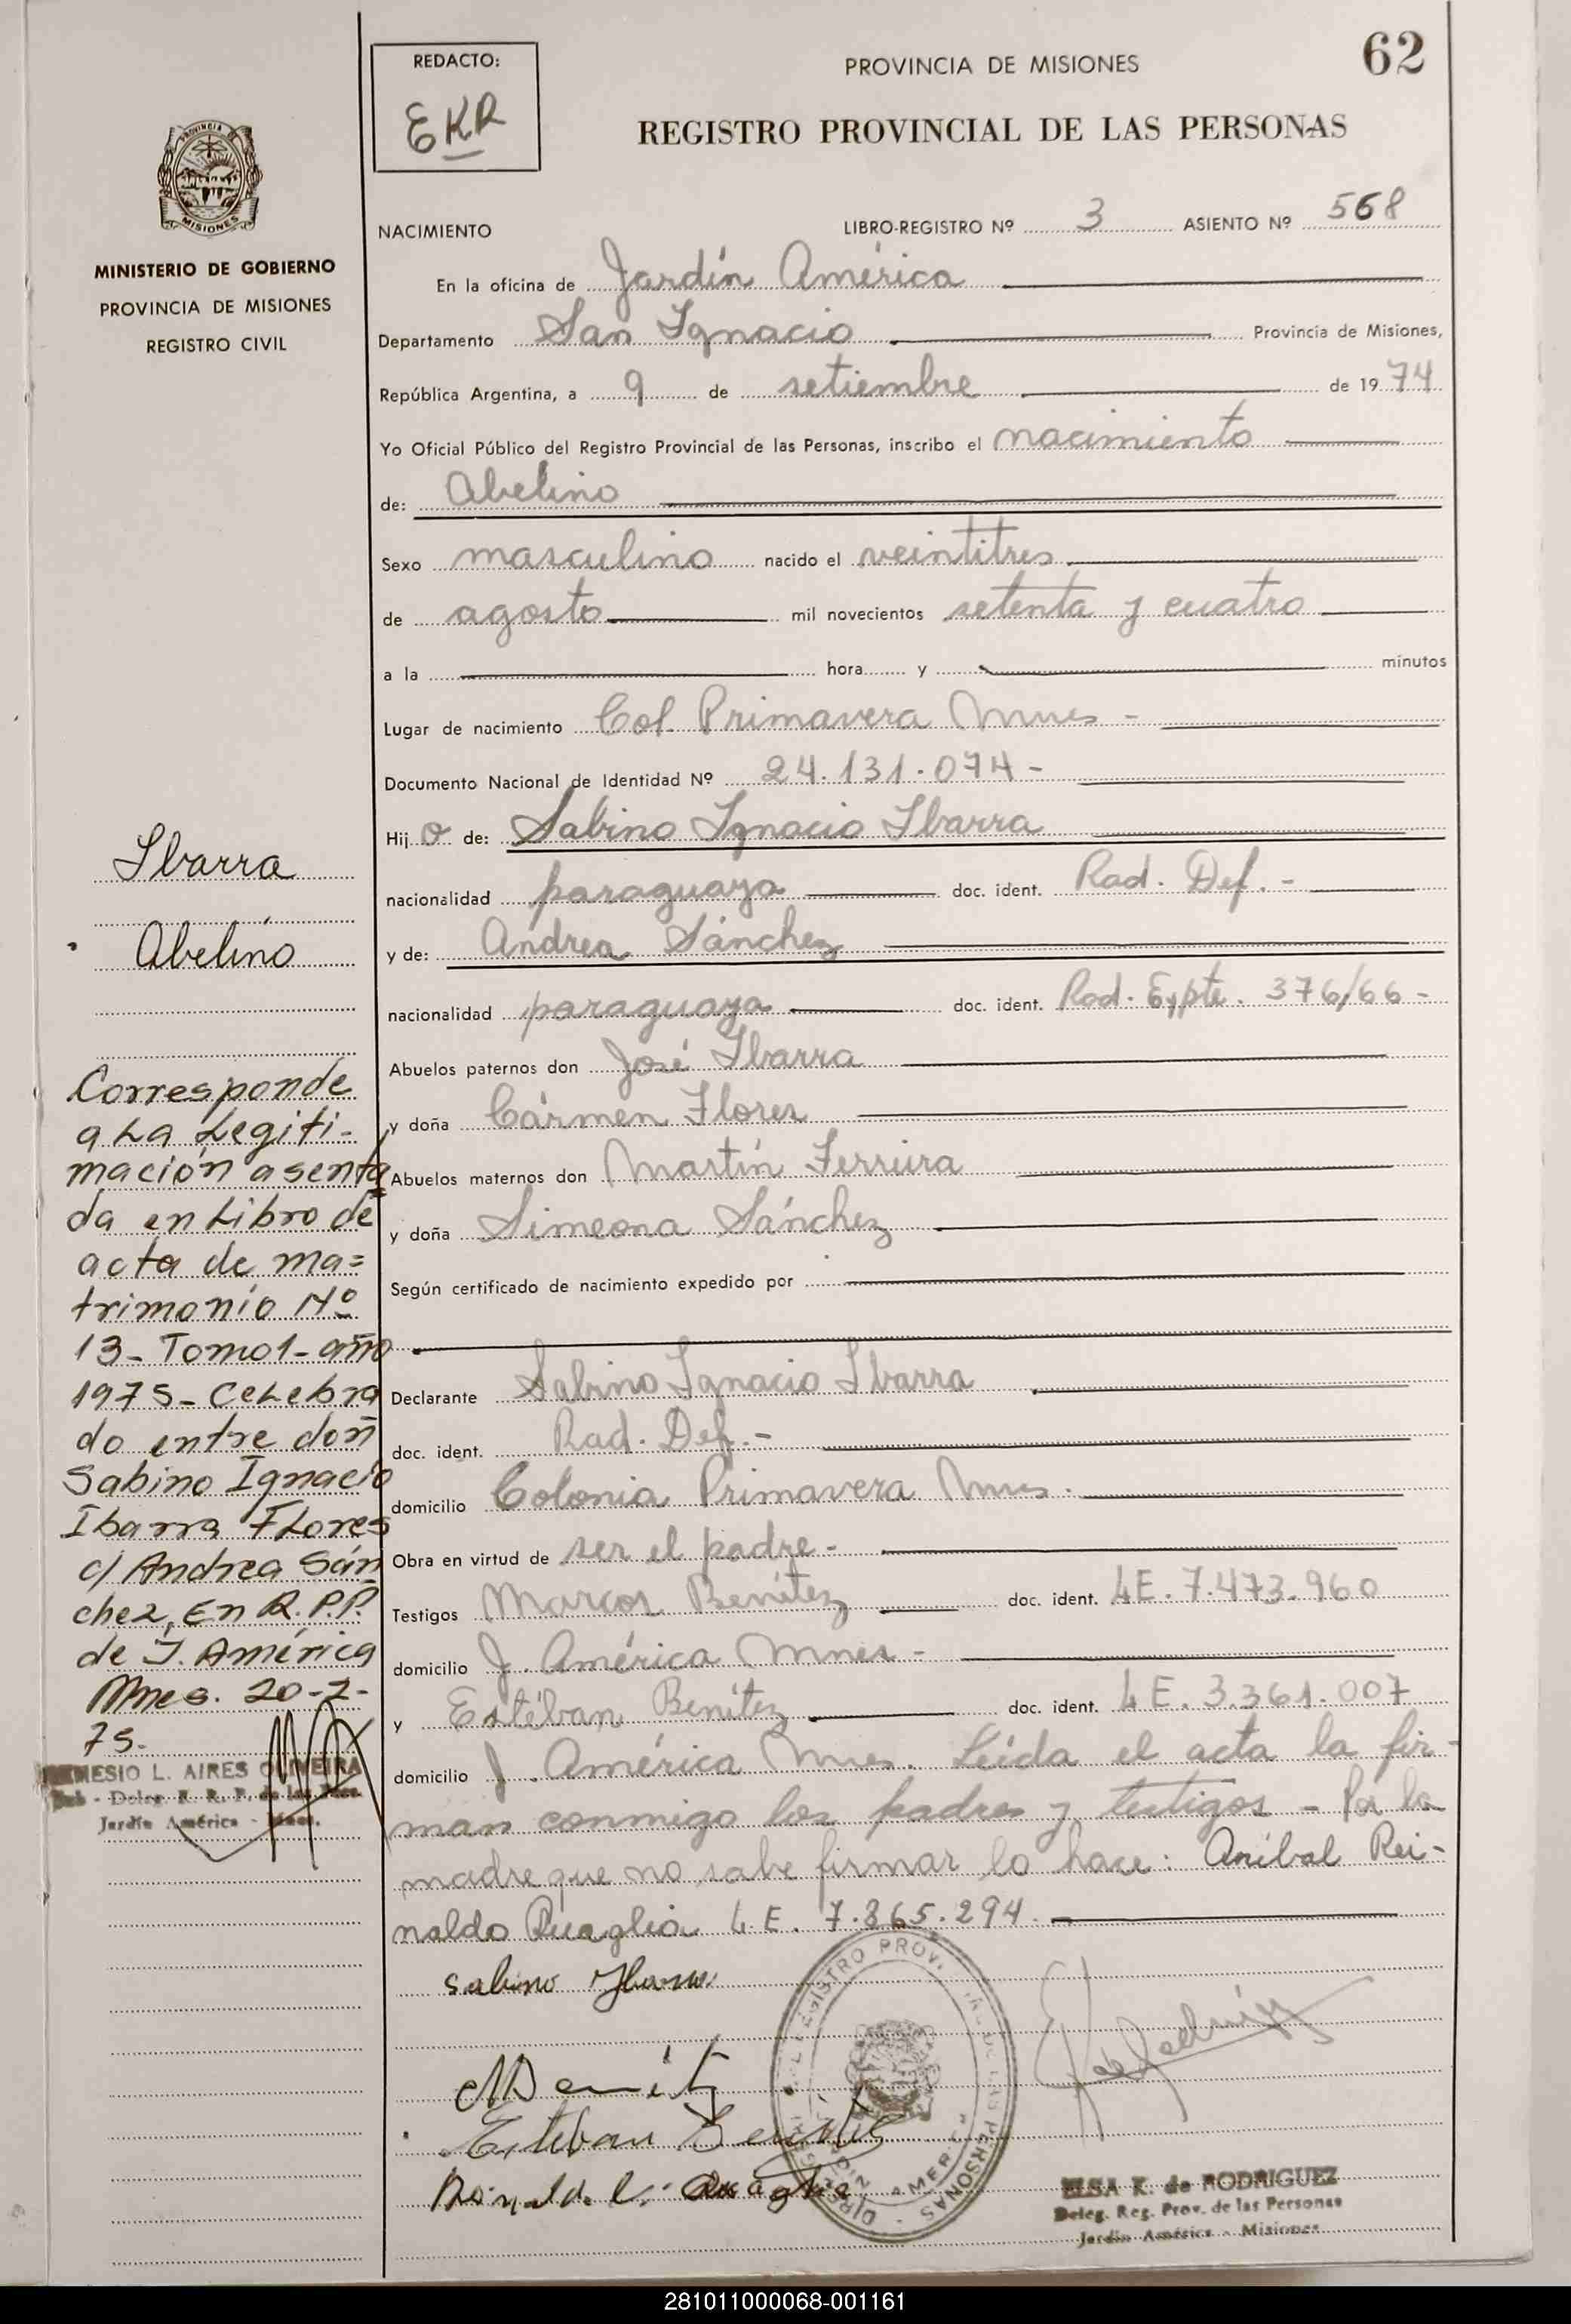 62
REDACTO:
EKR
PROVINCIA DE MISIONES
REGISTRO PROVINCIAL DE LAS PERSONAS
MISIONES
MINISTERIO DE GOBIERNO
PROVINCIA DE MISIONES
REGISTRO CIVIL
NACIMIENTO LIBRO-REGISTRO Nº 3 ASIENTO Nº 568
En la oficina de Jardín América
Departamento San Ignacio Provincia de Misiones,
República Argentina, a 9 de setiembre de 1974
Yo Oficial Público del Registro Provincial de las Personas, inscribo el nacimiento
de: Abelino
Sexo masculino nacido el veintitres
de agosto mil novecientos setenta y cuatro
a la hora y minutos
Lugar de nacimiento Col. Primavera Mnes -
Documento Nacional de Identidad Nº 24.131.074 -
Hijo de: Sabino Ignacio Ibarra
nacionalidad paraguaya doc. ident. Rad. Def. -
y de: Andrea Sánchez
nacionalidad paraguaya doc. ident. Rad. Expte. 376/66 -
Abuelos paternos don José Ibarra
y doña Cármen Flores
Abuelos maternos don Martín Ferreira
y doña Simeona Sánchez
Según certificado de nacimiento expedido por
Declarante Sabino Ignacio Ibarra
doc. ident. Rad. Def. -
domicilio Colonia Primavera Mnes.
Obra en virtud de ser el padre -
Testigos Marcos Benítez doc. ident. LE. 7.473.960
domicilio J. América Mnes -
y Estéban Benítez doc. ident. LE. 3.361.007
domicilio J. América Mnes. Leída el acta la fir-
man conmigo los padres y testigos - Por la
madre que no sabe firmar lo hace: Aníbal Rei-
naldo Quaglia L.E. 7.865.294.
Ibarra
Abelino
Corresponde
a la Legiti-
mación asenta
da en Libro de
acta de ma=
trimonio Nº
13- Tomo 1- año
1975- Celebra
do entre don
Sabino Ignacio
Ibarra Flores
c/ Andrea Sán
chez, En R.P.P.
de J. América
Mnes. 20-2-
75.
NEMESIO L. AIRES OLIVEIRA
Sub - Deleg. R. R. P. de las Pers.
Jardín América - Mnes.
Sabino Ibarra
MBenitez
Esteban Benitez
REGISTRO PROV. DE LAS PERSONAS
JARDIN AMERICA
ELSA K. de RODRIGUEZ
Deleg. Reg. Prov. de las Personas
Jardín América - Misiones
281011000068-001161